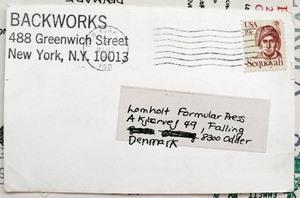 BACKWORKS
488 Greenwich Street
New York, N.Y. 10013
USA
19c
Sequoyah
Lomholt Formular Press
Akjærvej 49, Falling
8300 Odder
Denmark